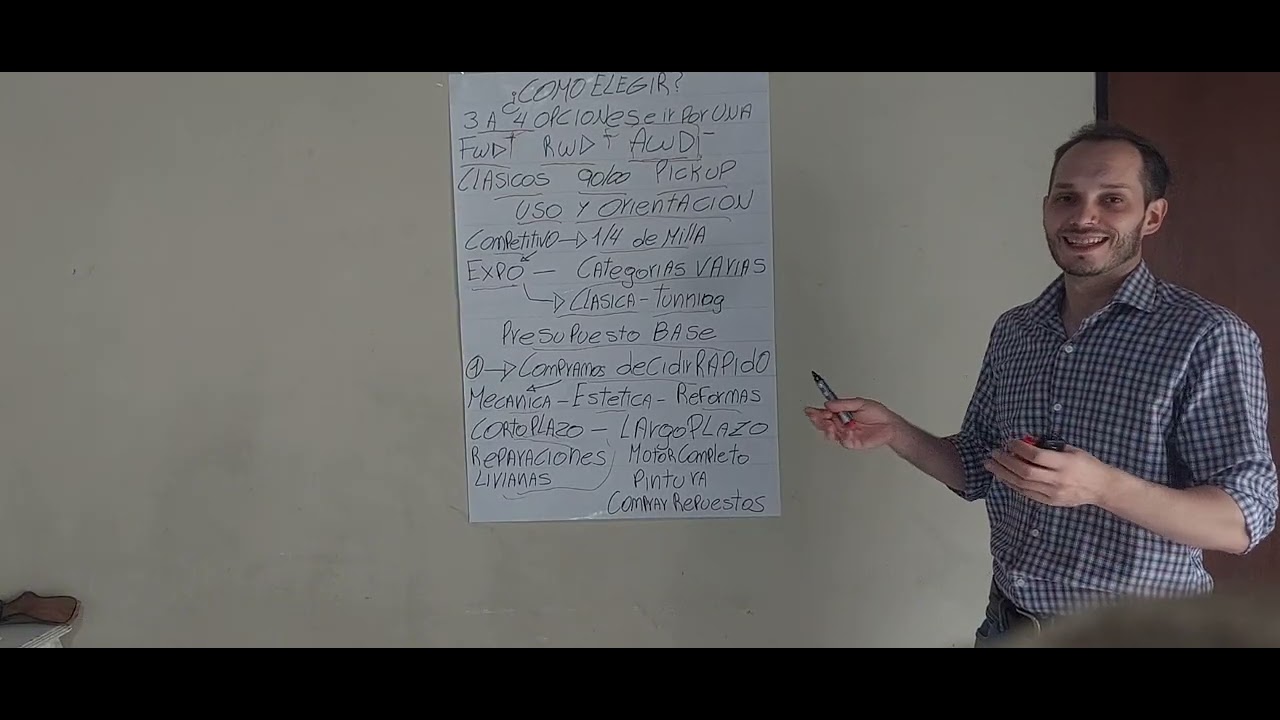 ¿COMO ELEGIR?
3 A 4 OPCIONES e ir POR UNA
FWD+ RWD+ AWD+-
CLASICOS 90/00 PICKUP
USO Y OrIENTACION
COMPETITIVO → 1/4 de MILLA
EXPO — CATEGORIAS VARIAS
→ CLASICA - TUNNING
PRESUPUESTO BASE
① → COMPRAMOS deCIdIr RAPIdO
MECANICA - ESTETICA - REFORMAS
CORTO PLAZO — LArgo PLAZO
REPARACIONES MOTOR COMPLETO
LIVIANAS PINTURA
COMPRAR REPUESTOS